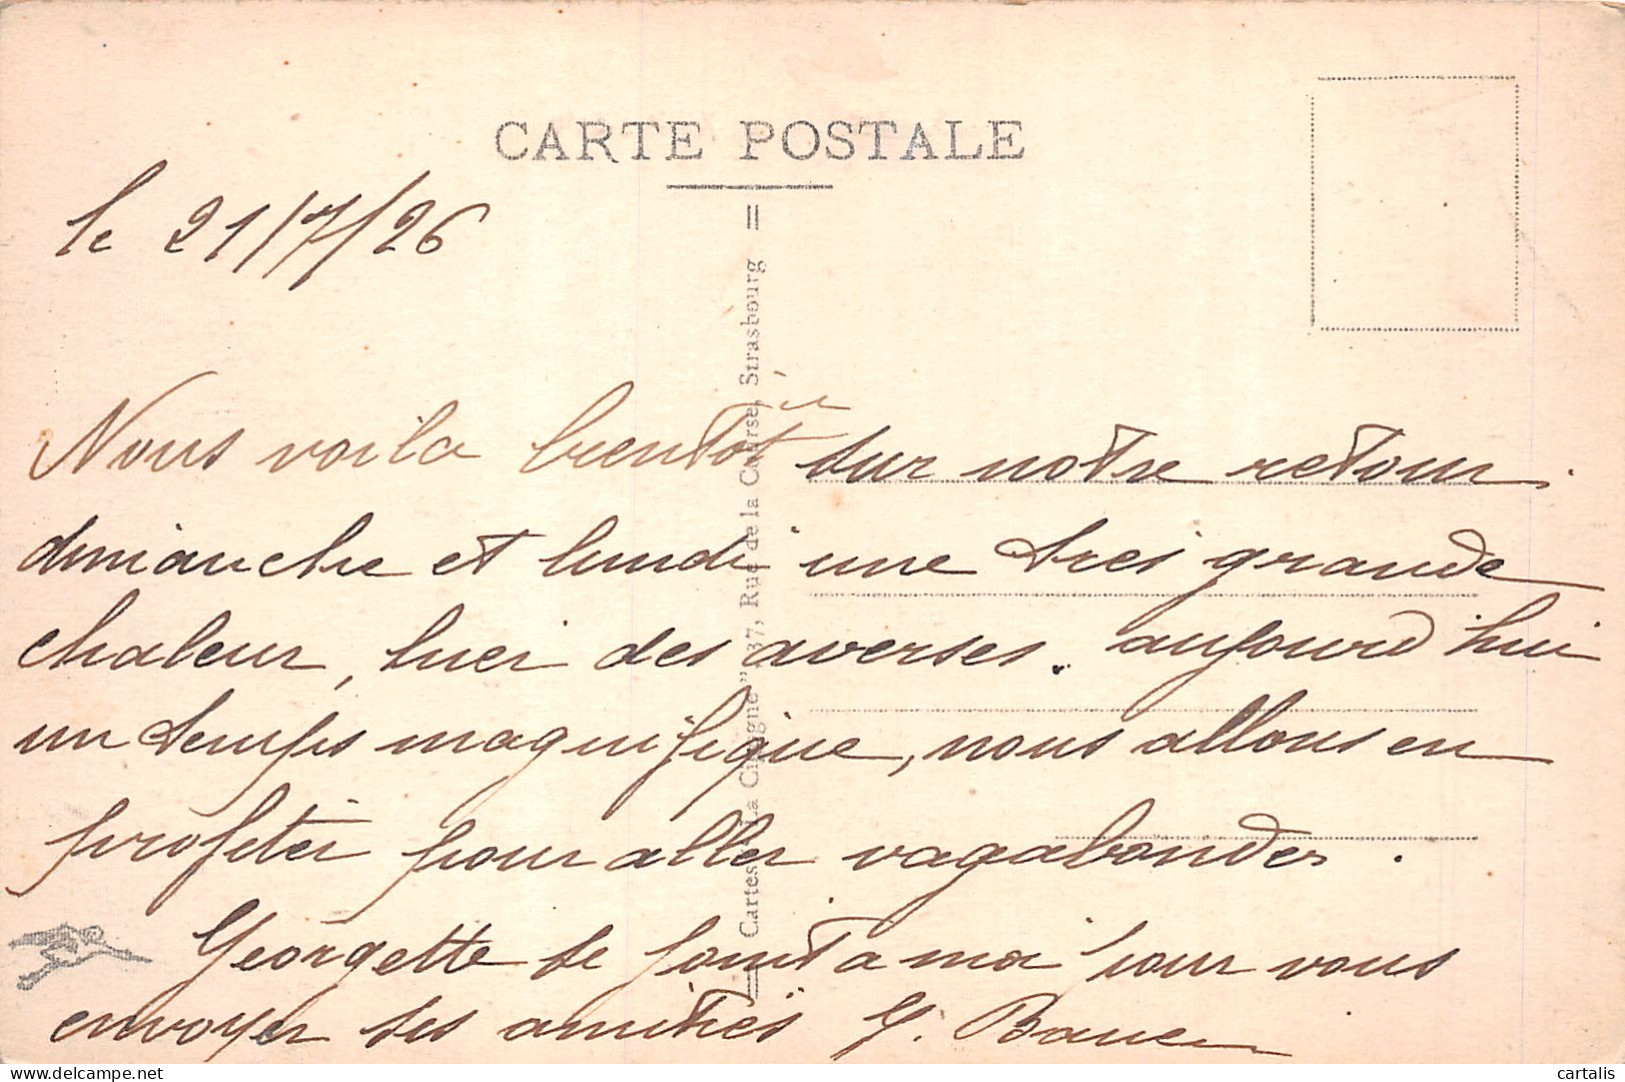 CARTE POSTALE
le 21/7/26
Nous voila bientôt sur notre retour.
dimanche et lundi une tres grande
chaleur, hier des averses. aujourd hui
un temps magnifique, nous allons en
profiter pour aller vagabonder.
Georgette se joint a moi pour vous
envoyer ses amitiés G. Bauer
Cartes "La Cigogne" 37, Rue de la Course, Strasbourg
delcampe.net
cartalis